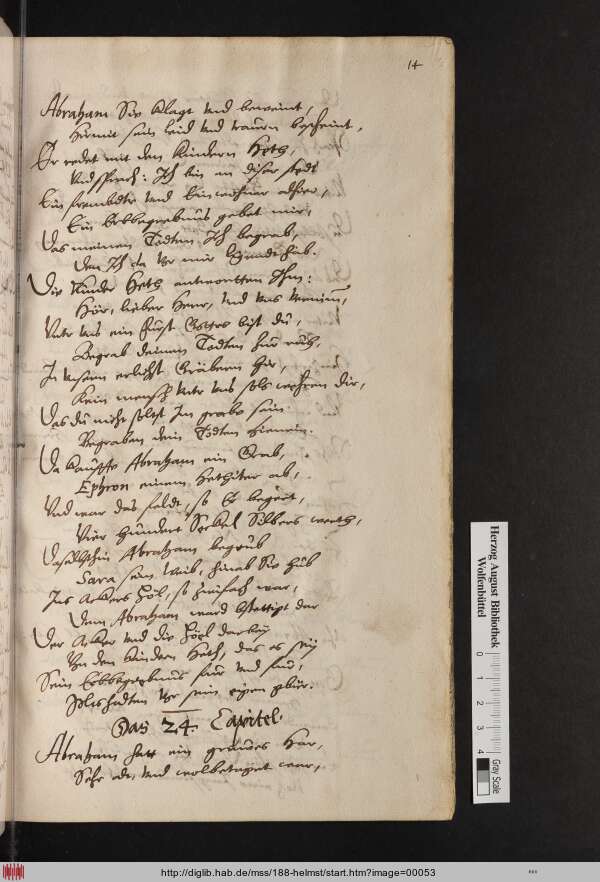 14
Abraham Sie klagt vnd beweint,
hiemit sein leid vnd trauern bescheint,
Er redet mit den Kindern Heth,
vnd sprach: Ich bin an diser stedt
Ein frembdter vnd Einwohner alhier,
Ein Erbbegrebnus gebet mir,
Das meinen Todten Ich begrab,
Den Ich da vor mir ligendt hab.
Die Kinder Heth antwortten Ihm:
Hör, lieber Herr, vnd vns vernim,
Vnter vns ein Fürst Gottes bist du,
Begrab deinen Todten hin
In vnsern erlichst Gräbern hir,
Kein mensch vnter vns sols wehren dir,
Das du nicht soltst Im grabe sein
Begraben dein Todten hienein.
Da kauffte Abraham ein Grab,
Ephron einem Hethiter ab,
Vnd war das feldt, so Er begert,
Vier hundert Seckel Silbers werth,
Daselbsthin Abraham begrub
Sara sein Weib, hinab Sie hub
Ins Ackers Höl, so zwifach war,
Dann Abraham ward bstettigt dar
Der Acker vnd die Höel darbey
Von den kindern Heth, das es sey
Sein Erbbegrebnus
vor sein eigen
Das 24. Capitel.
Abraham hatt ein graues Har,
Sehr alt, vnd wolbetaget war,
Herzog August Bibliothek
Wolfenbüttel
0 1 2 3 4
Gray Scale
http://diglib.hab.de/mss/188-helmst/start.htm?image=00053